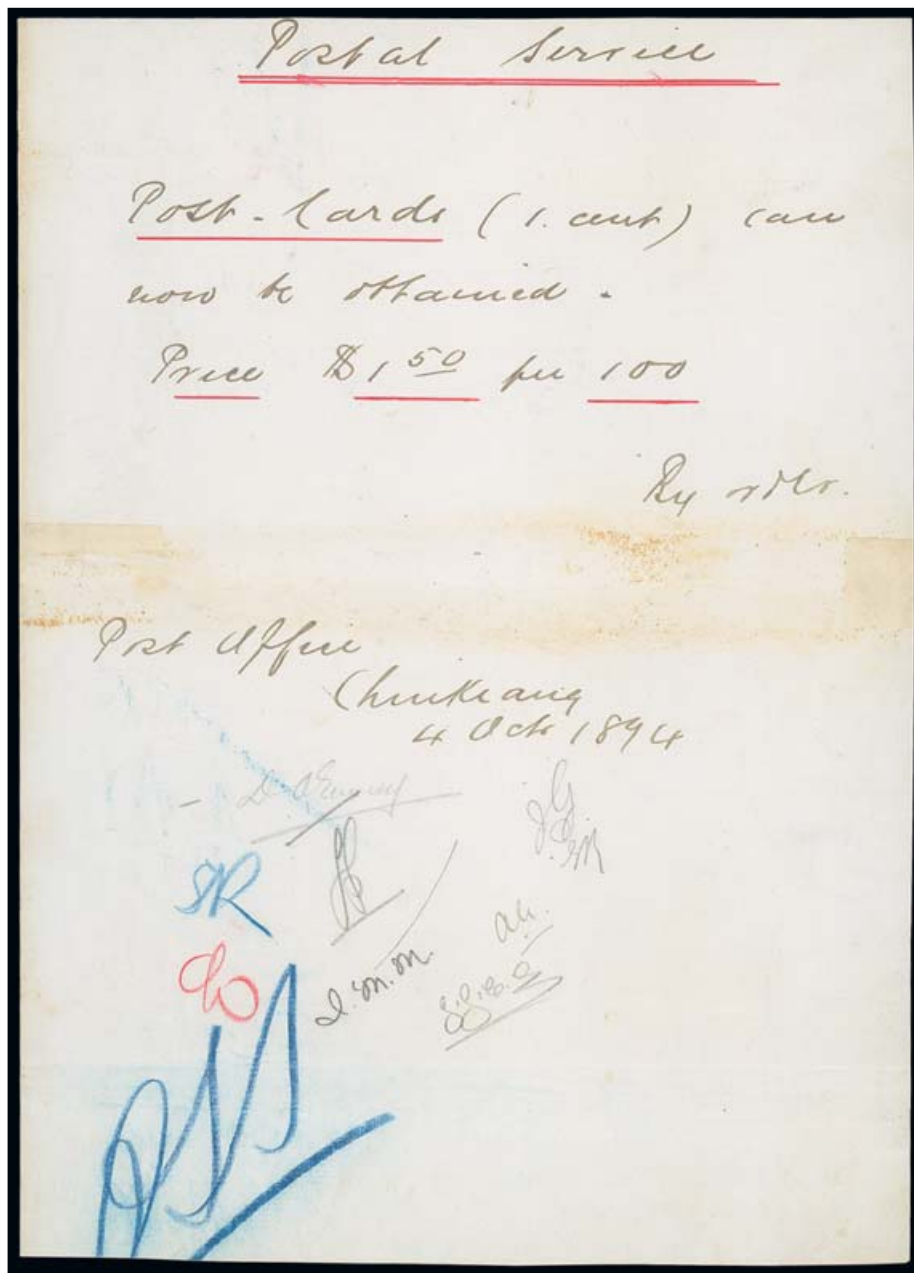 Postal Service
Post-Cards (1. cent) can
now be obtained.
Price $1 50 per 100
By order.
Post Office
Chinkeang
4 Octr 1894
SR
J.G
a.h.
D.M.M.